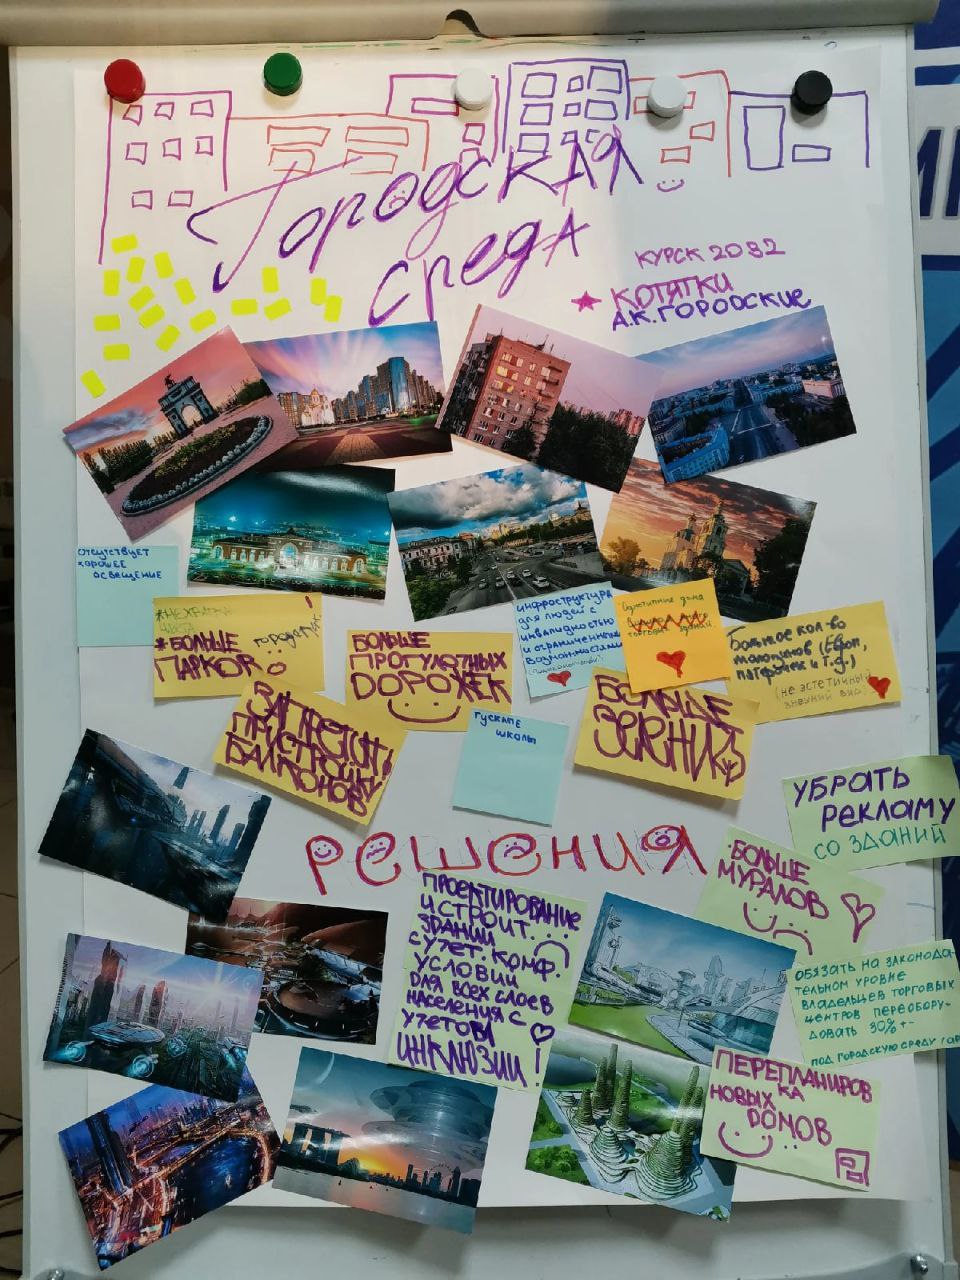 Городская
среда
КУРСК 2032
КОТЯТКИ
А.К. ГОРОДСКИЕ
отсутствует
хорошее
освещение
#НЕХВАТКА
МЕСТ
*БОЛЬШЕ
ПАРКОВ
города РЖ
БОЛЬШЕ
ПРОГУЛОЧНЫХ
ДОРОЖЕК
инфраструктура
для людей с
инвалидностью
и ограниченными
возможностями
Однотипные дома
торговых зданий.
Большое кол-во
магазинов (Европ,
пятёрочек и т.д.)
(не эстетичный
внешний вид)
ЗАПРЕТИТЬ
ПРИСТРОЙКУ
БАЛКОНОВ
Гускаме
школы
БОЛЬШЕ
ЗЕЛЕНИ
УБРАТЬ
РЕКЛАМУ
СО ЗДАНИЙ
РЕШЕНИЯ
БОЛЬШЕ
МУРАЛОВ
ПРОЕКТИРОВАНИЕ
И СТРОИТ.
ЗДАНИЙ
С УЧЕТ. КОМФ.
УСЛОВИЙ
ДЛЯ ВСЕХ СЛОЕВ
НАСЕЛЕНИЯ С
УЧЕТОМ
ИНКЛЮЗИИ!
ОБЯЗАТЬ НА ЗАКОНОДА-
ТЕЛЬНОМ УРОВНЕ
ВЛАДЕЛЬЦЕВ ТОРГОВЫХ
ЦЕНТРОВ ПЕРЕОБОРУ-
ДОВАТЬ 30% +-
ПОД ГОРОДСКУЮ СРЕДУ
ПЕРЕПЛАНИРОВ
КА
НОВЫХ
ДОМОВ